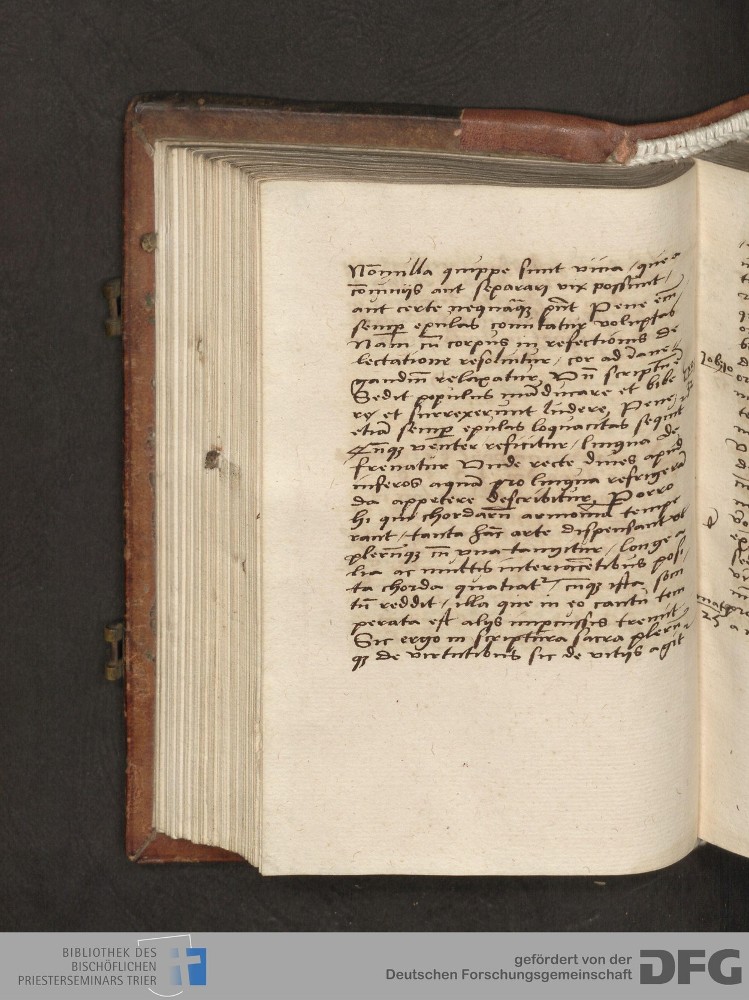 Nōnulla quippe sunt vitia / que a
cōtinuis aut separari vix possunt /
aut certe nequāqꝫ pn̄t Pene em̄
semꝑ epulas comitatur voluptas
Nam cū corpus in refectionis de
lectatione resoluitur / cor ad inane
gaudiū relaxatur Vn̄ scriptū ē
Sedit populus māducare et bibe
re et surrexerunt ludere, Pene
etiā semꝑ epulas loquacitas sequit
Cūqꝫ venter reficitur / lingua de
frenatur Vnde recte diues apud
inferos aquā pro lingua refrigerā
da appetere describitur, Porro
hi qui chordarū armoniā tempe
rant / tanta hāc arte dispensant vt
plerūqꝫ cū vna tangitur / longe a
lia ac multis interiacētibus posi
ta chorda quatiat Cūqꝫ ista soni
tū reddit / illa que in eo cantu tem
perata est alijs impcussis tremit
Sic ergo in scriptura sacra plerū
qꝫ de virtutibus sic de vitijs agit
BIBLIOTHEK DES
BISCHÖFLICHEN
PRIESTERSEMINARS TRIER
gefördert von der
Deutschen Forschungsgemeinschaft
DFG